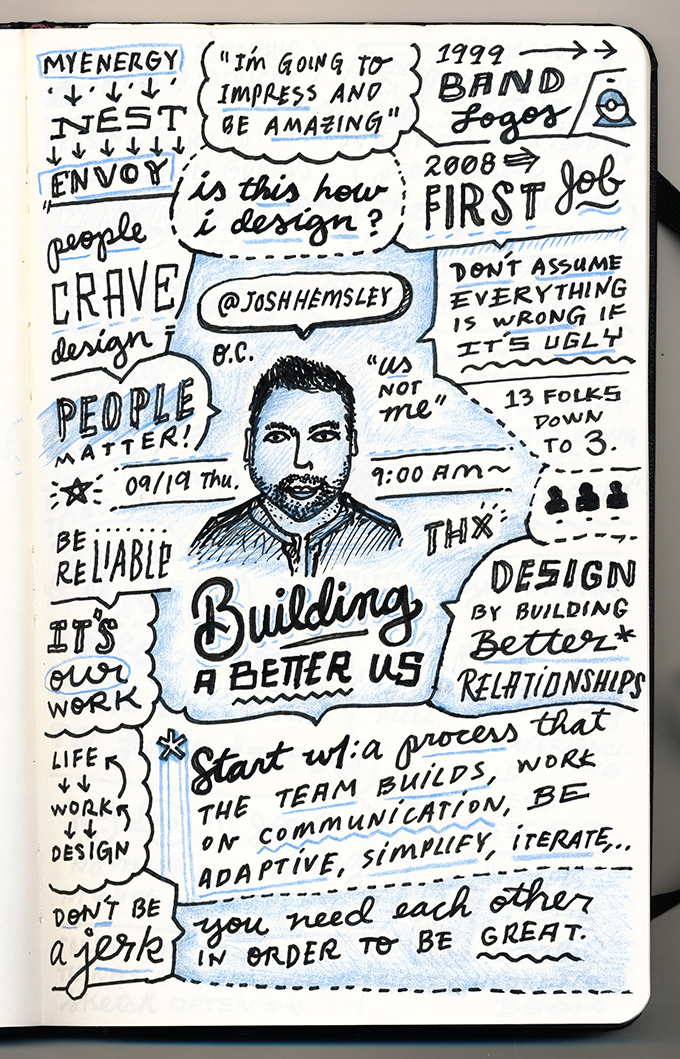 MYENERGY
NEST
ENVOY
"I'm GOING TO
IMPRESS AND
BE AMAZING"
1999
BAND
Logos
is this how
i design?
2008
FIRST Job
people
CRAVE
design
@JOSHHEMSLEY
O.C.
DON'T ASSUME
EVERYTHING
IS WRONG IF
IT'S UGLY
"us
NOT
me"
13 FOLKS
DOWN
TO 3.
PEOPLE
MATTER!
09/19 Thu.
9:00 AM~
THX
BE
RELIABLE
Building
A BETTER US
DESIGN
BY BUILDING
Better*
RELATIONSHIPS
IT'S
our
WORK
LIFE
WORK
DESIGN
*Start w/: a process that
THE TEAM BUILDS, WORK
ON COMMUNICATION, BE
ADAPTIVE, SIMPLIFY, ITERATE...
DON'T BE
a jerk
you need each other
IN ORDER TO BE GREAT.